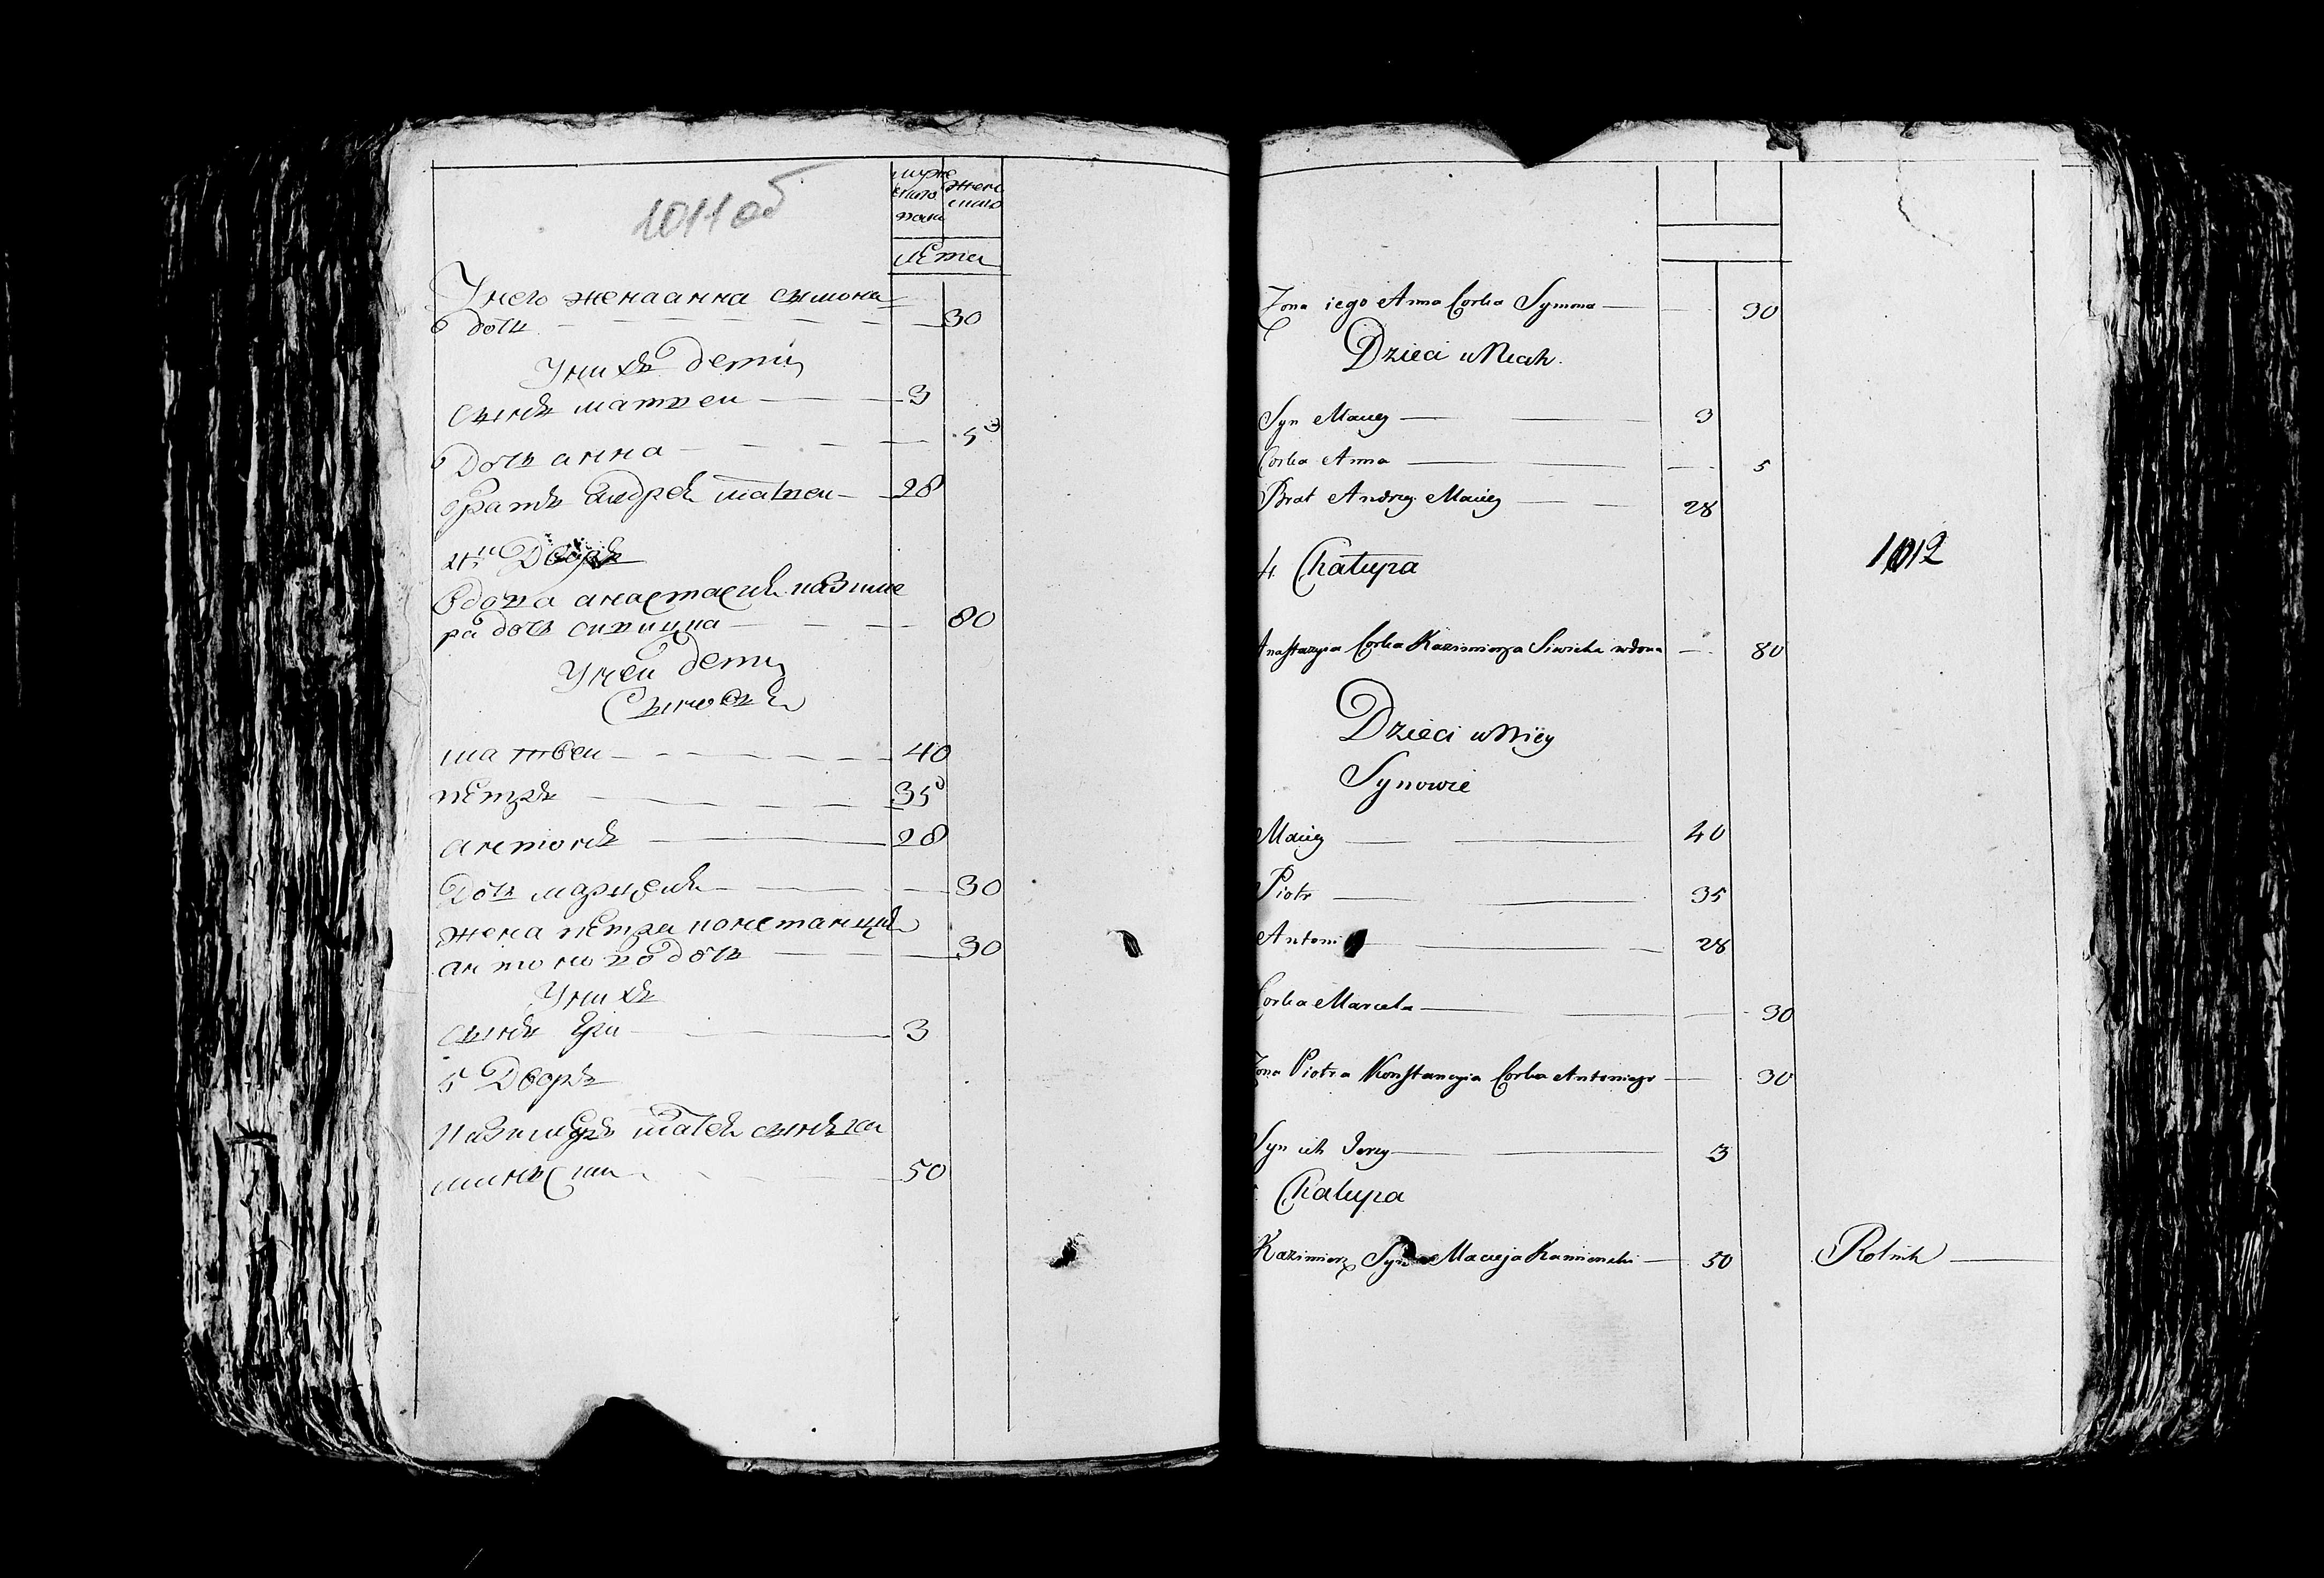 1011 об
мужескаго пола
женскаго
лета
У него жена анна сымона
дочь 30
У нихъ дети
сынъ матвеи 3
Дочь анна 5
братъ андрей матвеи 28
4й Дворъ
вдова анастасия казиме
ра дочь сивицка 80
У неи дети
Сыновья
матвеи 40
петръ 35
антонъ 28
Дочь марцеля 30
жена петра констанция
антонова дочь 30
У нихъ
сынъ 3
5 Дворъ
Казимеръ матея сынъ ка
минъски 50
Zona iego Anna Corka Symona 30
Dzieci u Nich
Syn Maciey 3
Corka Anna 5
Brat Andrzey Maciey 28
4 Chalupa
1012
Anastazyia Corka Kazimierza Siwicka wdowa 80
Dzieci u Niey
Synowie
Maciey 40
Piotr 35
Antoni 28
Corka Marcela 30
Zona Piotra Konstancyia Corka Antoniego 30
Syn ich Jerzy 3
Chalupa
Kazimierz Syn Macieja Kamienski 50 Rolnik